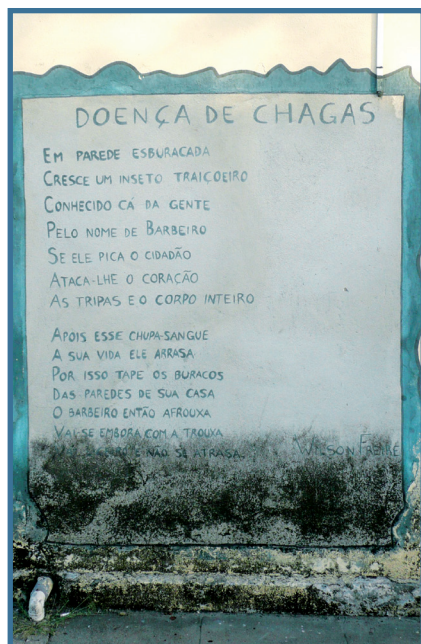 DOENÇA DE CHAGAS
EM PAREDE ESBURACADA
CRESCE UM INSETO TRAIÇOEIRO
CONHECIDO CÁ DA GENTE
PELO NOME DE BARBEIRO
SE ELE PICA O CIDADÃO
ATACA-LHE O CORAÇÃO
AS TRIPAS E O CORPO INTEIRO
APÓIS ESSE CHUPA-SANGUE
A SUA VIDA ELE ARRASA
POR ISSO TAPE OS BURACOS
DAS PAREDES DE SUA CASA
O BARBEIRO ENTÃO AFROUXA
VAI-SE EMBORA COM A TROUXA
E NÃO SE ATRASA.
WILSON FREIRE